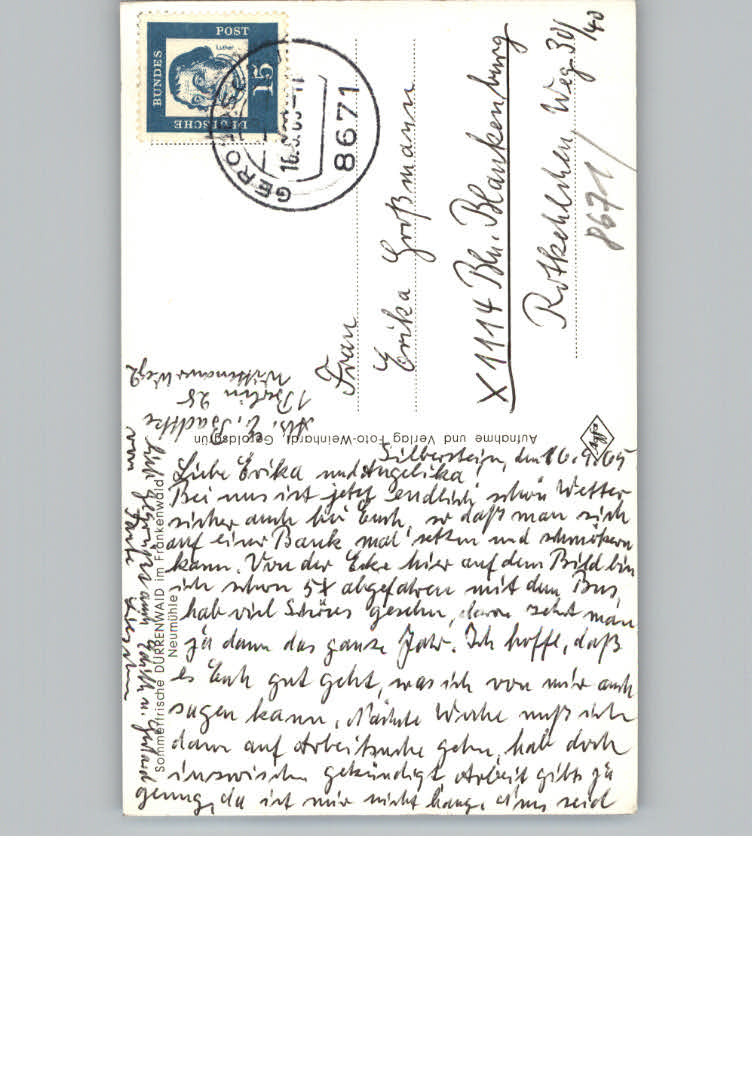 DEUTSCHE
BUNDES
POST
Luther
15
GERO
16.9.65-11
8671
Frau
Erika Großmann
X1114 Bln. Blankenburg
Rotkehlchen Weg 39/40
8671
Abs. E. Badtke
1 Berlin 28
Wittenauer Weg 2
Aufnahme und Verlag Foto-Weinhardt, Geroldsgrün
Sommerfrische DÜRRENWAID im Frankenwald
Neumühle
Silberstein, den 16.9.65
Liebe Erika und Angelika!
Bei uns ist jetzt endlich schön Wetter
sicher auch bei Euch, so daß man sich
auf einer Bank mal setzen und schmökern
kann. Von der Ecke hier auf dem Bild bin
ich schon 5x abgefahren mit dem Bus,
hab viel Schönes gesehn, davon zehrt man
ja dann das ganze Jahr. Ich hoffe, daß
es Euch gut geht, was ich von mir auch
sagen kann. Nächste Woche muß ich
dann auf Arbeitsuche gehn, hab doch
inzwischen gekündigt. Arbeit gibts ja
genug, da ist mir nicht bange. Nun seid
lieb gegrüßt auch Edith u. Gerhard
von
Tante